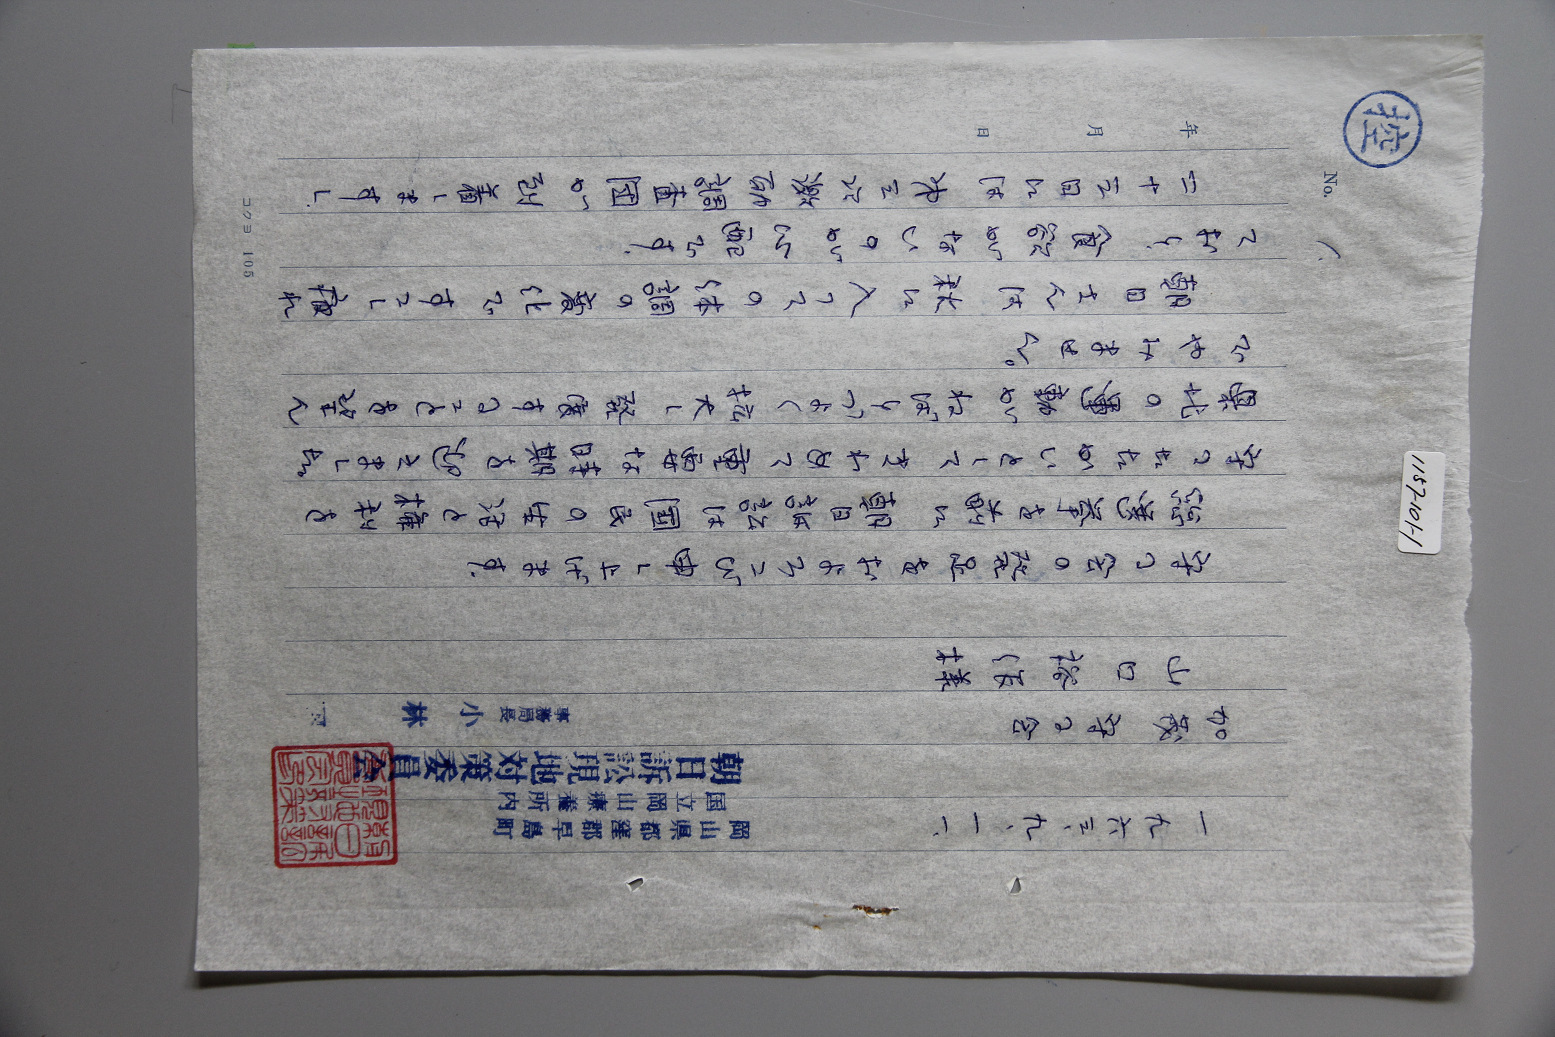 控
No. 1
一九六三、九、一一、
岡山県都窪郡早島町
国立岡山療養所内
朝日訴訟現地対策委員会
事務局長 小林
加茂守る会
山口 様
守る会の発足をおよろこび申し上げます.
総選挙を前に 朝日訴訟は国民の生活と権利を
守るたたかいとして きわめて重要な時期を迎えました。
県北の運動がねばりづよく拡大し発展することを望ん
でやみません。
朝日さんは秋に入っての体調の変化ですこし疲れ
ており.食慾がないのが心配です.
二十三日には 才三次激励調査団が到着します.
年 月 日
コクヨ 105
1157-101-1